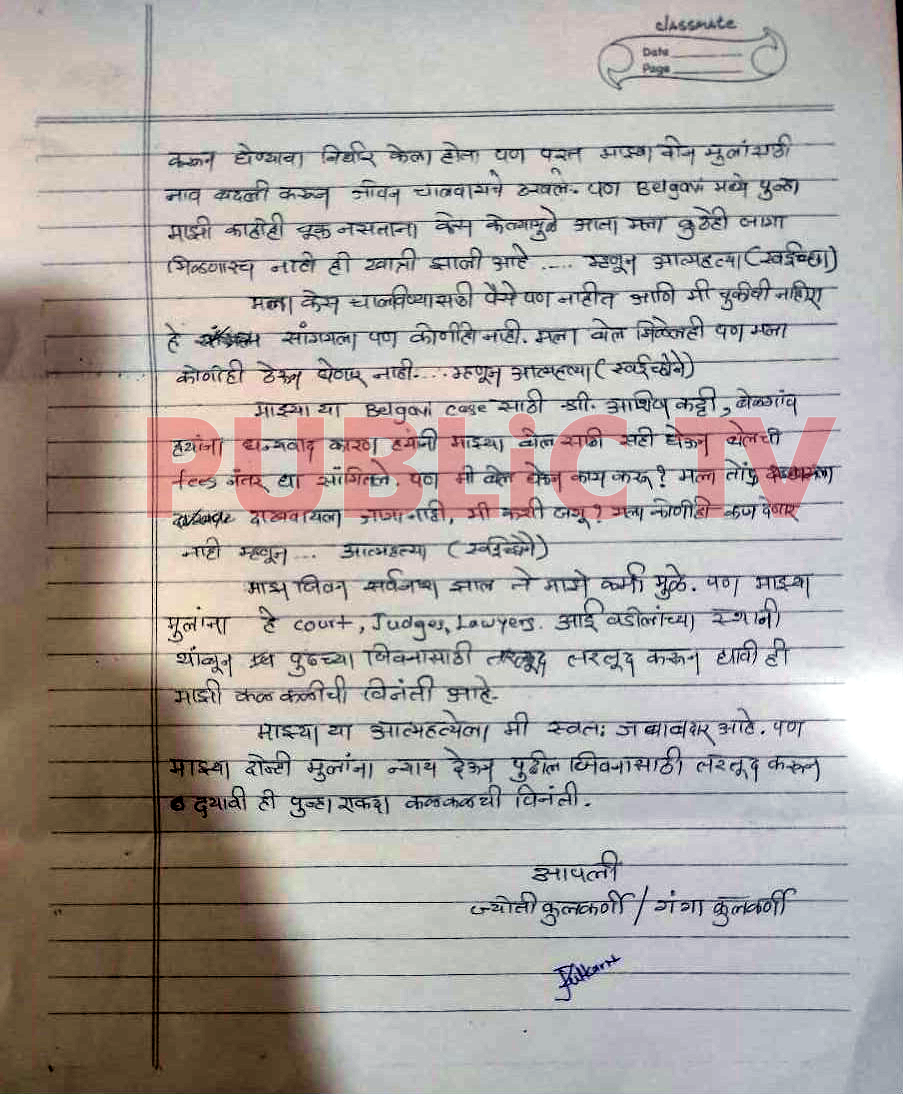 classmate
Date
Page
करून घेण्याचा निर्धार केला होता पण परत माझ्या दोन मुलांसाठी
नाव बदली करून जीवन चालवायचे ठरवले. पण Belgavi मध्ये पुन्हा
माझी काहीही चूक नसताना केस केल्यामुळे आता मला कुठेही जागा
मिळणारच नाही ही खात्री झाली आहे ..... म्हणून आत्महत्या (स्वईच्छा)
मला केस चालविण्यासाठी पैसे पण नाहीत आणि मी चुकीची नाहिए
हे सांगायला पण कोणीही नाही. मला बेल मिळेलही पण मला
कोणीही ठेऊन घेणार नाही.... म्हणून आत्महत्या (स्वईच्छेने)
माझ्या या Belgavi case साठी श्री. आशिष कट्टी, बेळगांव
ह्यांना धन्यवाद कारण ह्यांनी माझ्या बेल साठी सही घेऊन बेलची
fees नंतर द्या सांगितले. पण मी बेल घेऊन काय करू? मला तोंड
दाखवायला जागा नाही, मी कशी जगू? मला कोणीही काम देणार
नाही म्हणून ... आत्महत्या (स्वईच्छेने)
माझ जिवन सर्वनाश झाल ते माझे कर्मा मुळे. पण माझ्या
मुलांना हे court, Judges, Lawyers. आई वडीलांच्या स्थानी
थांबून पुढच्या जिवनासाठी तरतूद करून द्यावी ही
माझी कळकळीची विनंती आहे.
माझ्या या आत्महत्येला मी स्वतः जबाबदार आहे. पण
माझ्या दोन्ही मुलांना न्याय देऊन पुढील जिवनासाठी तरतूद करून
दयावी ही पुन्हा एकदा कळकळची विनंती.
आपली
ज्योती कुलकर्णी / गंगा कुलकर्णी
PUBLiC TV